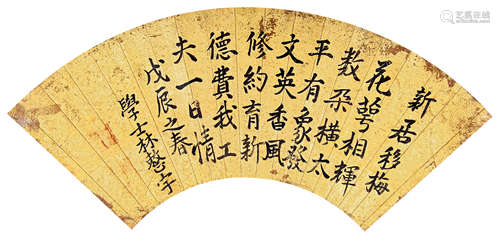 新居移梅
花萼相輝
數朶橫太
平有象發
文英香風
修約育新
德費我工
夫一日情
戊辰之春
學士林愸宇